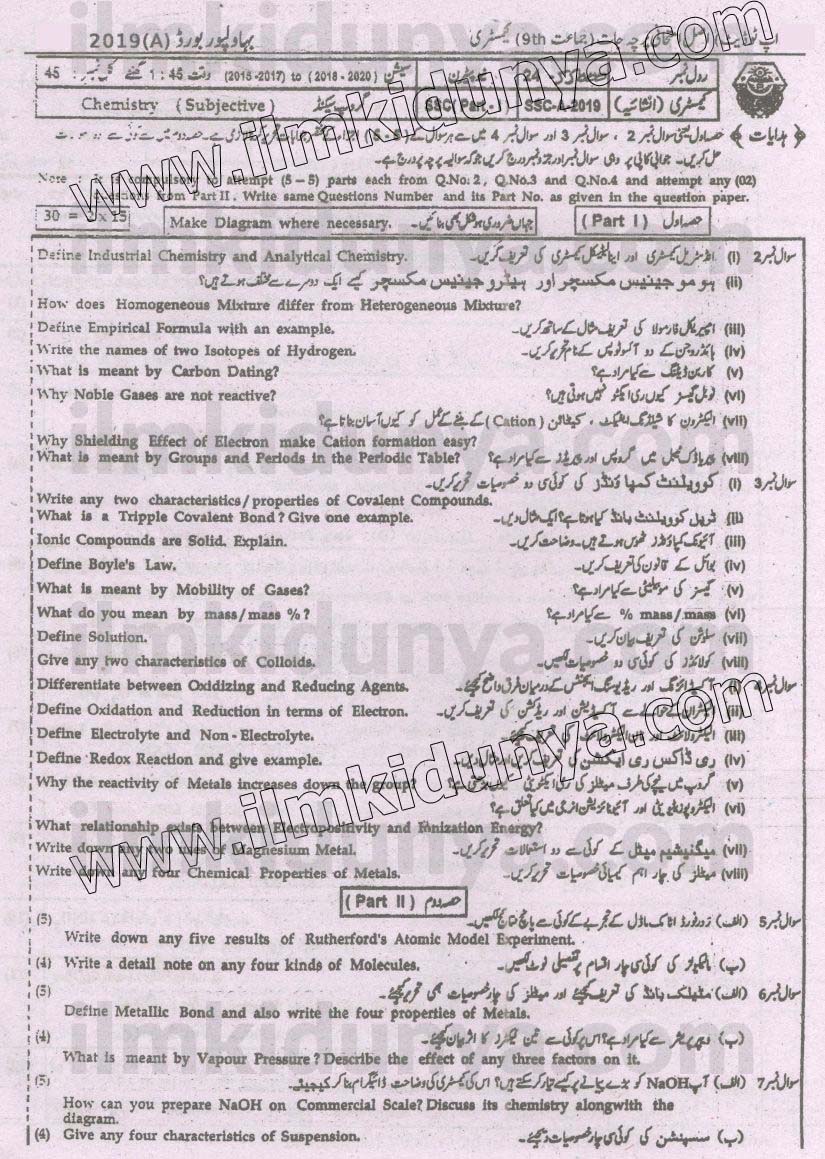 بہاولپور بورڈ 2019(A)
رول نمبر
سیشن (2015-2017) to (2018-2020) وقت 1:45 گھنٹے کل نمبر: 45
کیمسٹری (انشائیہ) SSC-A-2019 SSC(Part-I) گروپ سیکنڈ Chemistry (Subjective)
Note : it is compulsory to attempt (5 – 5) parts each from Q.No: 2, Q.No.3 and Q.No.4 and attempt any (02)
questions from Part II. Write same Questions Number and its Part No. as given in the question paper.
حصہ اول (Part I) جہاں ضروری ہو شکل بھی بنائیں۔ Make Diagram where necessary. 30 = 2 x 15
سوال نمبر 2 (i) انڈسٹریل کیمسٹری اور اینالیٹیکل کیمسٹری کی تعریف کریں۔ Define Industrial Chemistry and Analytical Chemistry.
(ii) ہوموجینیس مکسچر اور ہیٹروجینیس مکسچر کیسے ایک دوسرے سے مختلف ہوتے ہیں؟
How does Homogeneous Mixture differ from Heterogeneous Mixture?
(iii) ایمپیریکل فارمولا کی تعریف مثال کے ساتھ کریں۔ Define Empirical Formula with an example.
(iv) ہائڈروجن کے دو آئسوٹوپس کے نام تحریر کریں۔ Write the names of two Isotopes of Hydrogen.
(v) کاربن ڈیٹنگ سے کیا مراد ہے؟ What is meant by Carbon Dating?
(vi) نوبل گیسز کیوں ری ایکٹو نہیں ہوتی ہیں؟ Why Noble Gases are not reactive?
(vii) الیکٹرون کا شیلڈنگ ایفیکٹ، کیٹائن (Cation) کے بننے کے عمل کو کیوں آسان بناتا ہے؟
Why Shielding Effect of Electron make Cation formation easy?
(viii) پیریاڈک ٹیبل میں گروپس اور پیریڈز سے کیا مراد ہے؟ What is meant by Groups and Periods in the Periodic Table?
سوال نمبر 3 (i) کوویلنٹ کمپاؤنڈز کی کوئی سی دو خصوصیات تحریر کریں۔
Write any two characteristics/properties of Covalent Compounds.
(ii) ٹرپل کوویلنٹ بانڈ کیا ہوتا ہے؟ ایک مثال دیں۔ What is a Tripple Covalent Bond? Give one example.
(iii) آئیونک کمپاؤنڈز ٹھوس ہوتے ہیں۔ وضاحت کریں۔ Ionic Compounds are Solid. Explain.
(iv) بوائل کے قانون کی تعریف کریں۔ Define Boyle's Law.
(v) گیسز کی موبیلیٹی سے کیا مراد ہے؟ What is meant by Mobility of Gases?
(vi) mass/mass % سے کیا مراد ہے؟ What do you mean by mass/mass %?
(vii) سلوشن کی تعریف بیان کریں۔ Define Solution.
(viii) کولائڈز کی کوئی سی دو خصوصیات لکھیں۔ Give any two characteristics of Colloids.
سوال نمبر 4 آکسیڈائزنگ اور ریڈیوسنگ ایجنٹس کے درمیان فرق واضح کیجئے۔ Differentiate between Oxidizing and Reducing Agents.
کی تعریف کریں۔ Define Oxidation and Reduction in terms of Electron.
(iii) Define Electrolyte and Non - Electrolyte.
(iv) ری ڈاکس ری ایکشن کی تعریف کریں اور مثال دیں۔ Define Redox Reaction and give example.
(v) گروپ میں نیچے کی طرف میٹلز کی ری ایکٹیویٹی Why the reactivity of Metals increases down the group?
(vi) الیکٹروپوزیٹیویٹی اور آئیونائزیشن انرجی میں کیا تعلق ہے؟
What relationship exists between Electropositivity and Ionization Energy?
(vii) میگنیشیم میٹل کے کوئی سے دو استعمالات تحریر کریں۔ Write down any two uses of Magnesium Metal.
(viii) میٹلز کی چار اہم کیمیائی خصوصیات تحریر کریں۔ Write down any four Chemical Properties of Metals.
حصہ دوم (Part II)
سوال نمبر 5 (الف) ردرفورڈ اٹامک ماڈل کے تجربے کے کوئی سے پانچ نتائج لکھیں۔ (5)
Write down any five results of Rutherford's Atomic Model Experiment.
(ب) مالیکیولز کی کوئی سی چار اقسام پر تفصیلی نوٹ لکھیں۔ Write a detail note on any four kinds of Molecules. (4)
سوال نمبر 6 (الف) میٹلک بانڈ کی تعریف کیجئے اور میٹلز کی چار خصوصیات بھی تحریر کیجئے۔ (5)
Define Metallic Bond and also write the four properties of Metals.
(ب) ویپر پریشر سے کیا مراد ہے؟ اس پر کوئی سے تین فیکٹرز کا اثر بیان کیجئے۔ (4)
What is meant by Vapour Pressure? Describe the effect of any three factors on it.
سوال نمبر 7 (الف) آپ NaOH کو بڑے پیمانے پر کیسے تیار کرسکتے ہیں؟ اس کی کیمسٹری کی وضاحت ڈائیگرام بنا کر کیجیئے۔ (5)
How can you prepare NaOH on Commercial Scale? Discuss its chemistry alongwith the
diagram.
(ب) سسپنشن کی کوئی سی چار خصوصیات دیجئے۔ Give any four characteristics of Suspension. (4)
www.ilmkidunya.com
www.ilmkidunya.com
ilmkidunya.com